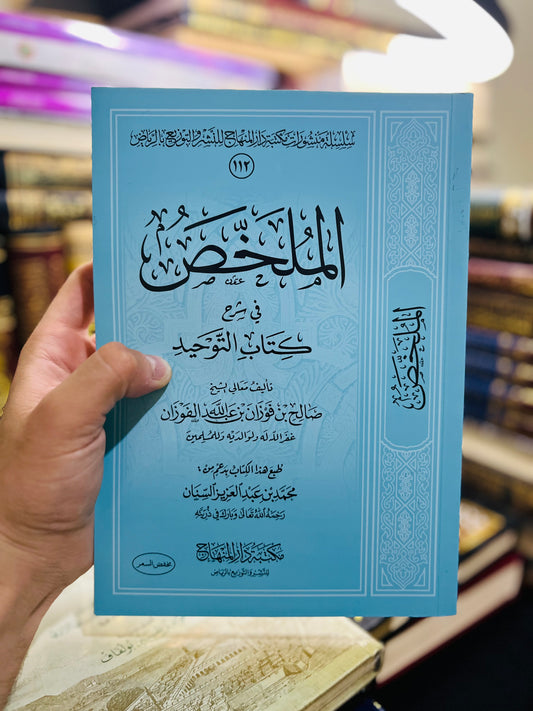 سلسلة منشورات مكتبة دار المنهاج للنشر والتوزيع بالرياض
١١٢
الملخّص
في شرح
كتاب التوحيد
تأليف معالي الشيخ
صالح بن فوزان بن عبد الله الفوزان
غفر الله له ولوالديه وللمسلمين
طبع هذا الكتاب بدعم من:
محمد بن عبد العزيز السيان
رحمه الله تعالى وبارك في ذريته
مكتبة دار المنهاج
للنشر والتوزيع بالرياض
مخفض السعر
الملخّص